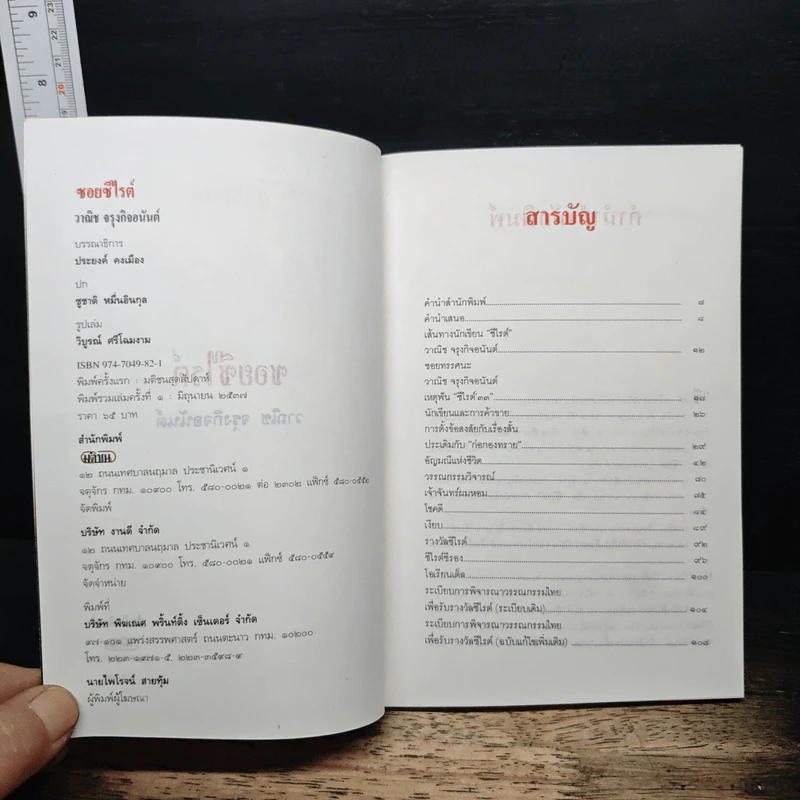 ซอยซีไรต์
วาณิช จรุงกิจอนันต์
บรรณาธิการ
ประยงค์ คงเมือง
ปก
ชูชาติ หมื่นอินกุล
รูปเล่ม
วิบูรณ์ ศรีโฉมงาม
ISBN 974-7049-82-1
พิมพ์ครั้งแรก : มติชนสุดสัปดาห์
พิมพ์รวมเล่มครั้งที่ ๑ : มิถุนายน ๒๕๓๗
ราคา ๖๕ บาท
สำนักพิมพ์
มติชน
๑๒ ถนนเทศบาลนฤมาล ประชานิเวศน์ ๑
จตุจักร กทม. ๑๐๙๐๐ โทร. ๕๘๐-๐๐๒๑ ต่อ ๒๓๐๒ แฟ็กซ์ ๕๘๐-๐๕๕๒
จัดพิมพ์
บริษัท งานดี จำกัด
๑๒ ถนนเทศบาลนฤมาล ประชานิเวศน์ ๑
จตุจักร กทม. ๑๐๙๐๐ โทร. ๕๘๐-๐๐๒๑ แฟ็กซ์ ๕๘๐-๐๕๕๙
จัดจำหน่าย
พิมพ์ที่
บริษัท พิฆเณศ พริ้นท์ติ้ง เซ็นเตอร์ จำกัด
๙๗-๑๐๑ แพร่งสรรพศาสตร์ ถนนตะนาว กทม. ๑๐๒๐๐
โทร. ๒๒๓-๑๙๗๑-๕. ๒๒๓-๓๕๙๘-๙
นายไพโรจน์ สายทุ้ม
ผู้พิมพ์ผู้โฆษณา
สารบัญ
คำนำสำนักพิมพ์ ๗
คำนำเสนอ ๘
เส้นทางนักเขียน "ซีไรต์"
วาณิช จรุงกิจอนันต์ ๑๒
ซอยทรรศนะ
วาณิช จรุงกิจอนันต์
เหตุพัน "ซีไรต์ ๓๓" ๑๗
นักเขียนและการค้าขาย ๒๖
การตั้งข้อสงสัยกับเรื่องสั้น
ประเดิมกับ "ก่อกองทราย" ๒๙
อัญมณีแห่งชีวิต ๔๒
วรรณกรรมวิจารณ์ ๗๐
เจ้าจันทร์ผมหอม ๗๕
โชคดี ๘๔
เงียบ ๘๙
รางวัลซีไรต์ ๙๒
ซีไรต์ซีรอง ๙๖
โอเรียนเต็ล ๑๐๐
ระเบียบการพิจารณาวรรณกรรมไทย
เพื่อรับรางวัลซีไรต์ (ระเบียบเดิม) ๑๐๔
ระเบียบการพิจารณาวรรณกรรมไทย
เพื่อรับรางวัลซีไรต์ (ฉบับแก้ไขเพิ่มเติม) ๑๐๘